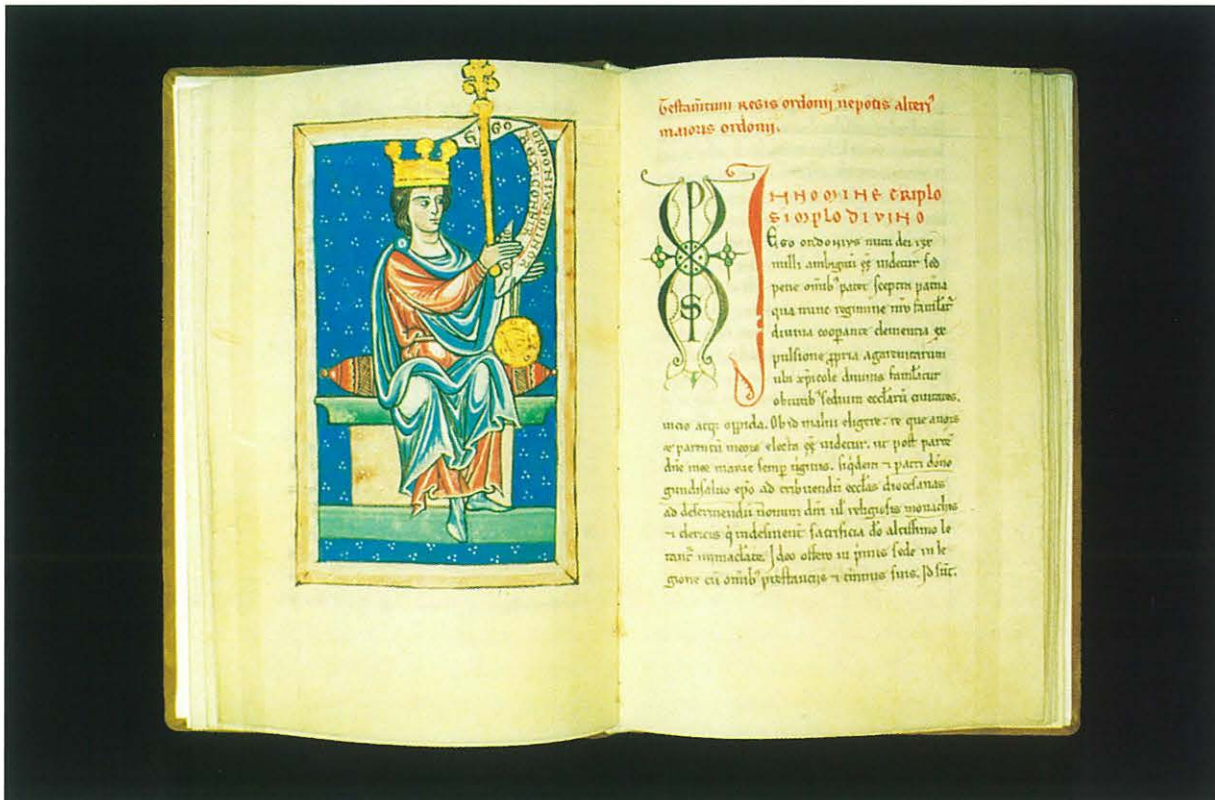 EGO ORDONIVS MINOR
REX CONFIRMO
Testam̄tum regis ordonij nepotis alterꝰ
maioris ordonij.
XPS
IN NOMINE TRIPLO
SIMPLO DIVINO
Ego ordonius nutu dei rex
nulli ambiguū eē uidetur sed
pene omībꝰ patet sceptra patria
qua nunc regimine
diuina coopante clementia ex
pulsione ppria agarenitarum
ubi xp̄icole diuinis
obtinibꝰ sedium eccl̄arū ciuitates.
uicio atq; oppida. Ob id malui eligere
meis electa eē uidetur. ut post parte
dn̄e mee marie semp uiginis. siq̇dem ⁊ patri dōno
gundisaluo ep̄o ad tribuendū eccl̄as diocesanas
ad deseruiendū dn̄i ul religiosis monachis
⁊ clericis q̇ indesinent̄ sacrificia dō altissimo le
tant̄ inmaculate. Ideo offero in p̄mis sede in le
gione cū omībꝰ prestanciis ⁊ suis. Id sūt.